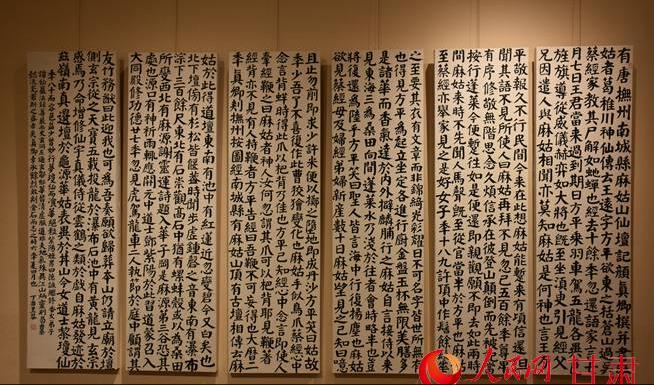 有唐撫州南城縣麻姑山仙壇記顏真卿撰并書麻
姑者葛稚川神仙傳云王遠字方平欲東之括蒼山過吳
蔡經家教其尸解如蛇蟬也經去十餘年忽還語家言
七月七日王君當來過到期日方平乘羽車駕五龍各異色
旌旗導從威儀赫弈如大將也既至坐須臾引見經父
兄因遣人與麻姑相聞亦莫知麻姑是何神也言王方
平敬報久不行民間今來在此想麻姑能暫來有頃信還但
聞其語不見所使人曰麻姑再拜不見忽已五百餘年尊卑
有序修敬無階思念久煩信承在彼登山顛倒而先被記當
按行蓬萊今便暫往如是便還即親觀願不即去如此兩時
間麻姑來時不先聞人馬聲既至從官當半於方平也麻姑
至蔡經亦舉家見之是好女子年十八九許頂中作髻餘髮垂
之至要其衣有文章而非錦綺光彩耀日不可名字皆世所無有
也得見方平方平為起立坐定各進行廚金盤玉杯無限美膳多
是諸華而香氣達於內外擗麟脯行之麻姑自言接待以來
見東海三為桑田向間蓬萊水乃淺於往者會時略半也豈
將復還為陸乎方平笑曰聖人皆言海中行復揚塵也麻姑
欲見蔡經母及婦經弟婦新產數十日麻姑望見之已知曰噫
且止勿前即求少許米便以擲之墮地即成丹沙方平笑曰姑故
年少吾了不喜復作此曹狡獪變化也麻姑手似鳥爪蔡經心中
念言背蛘時得此爪以爬背乃佳也方平已知經心中念言即使人
牽經鞭之曰麻姑者神人汝何忽謂其爪可以爬背耶見鞭著
經背亦不見有人持鞭者方平告經曰吾鞭不可妄得也大曆三
年真卿刺撫州按圖經南城縣有麻姑山頂有古壇相傳云麻
姑於此得道壇東南有池中有紅蓮近忽變碧今又白矣
北下壇傍有杉松皆偃蓋時聞步虛鐘磬之音東南有瀑布
淙下三百餘尺東北有石崇觀高石中猶有螺蚌殼或以為桑田
所變西北有麻源謝靈運詩題入華子崗是麻源第三谷恐其
處也源口有神祈雨輒應開元中道士鄧紫陽於此習道蒙召入
大同殿修功德廿七年忽見虎駕龍車二人執節於庭中顧謂其
友竹務猷曰此迎我也可為吾奏願欲歸葬本山仍請立廟於壇
側玄宗從之天寶五載投龍於瀑布石池中有黃龍見玄宗
感焉乃命增修仙宇真儀侍從雲鶴之類於戲自麻姑發跡於
茲嶺南真遺壇於龜源華姑表異於井山今女道士黎瓊仙
人民网 甘肃